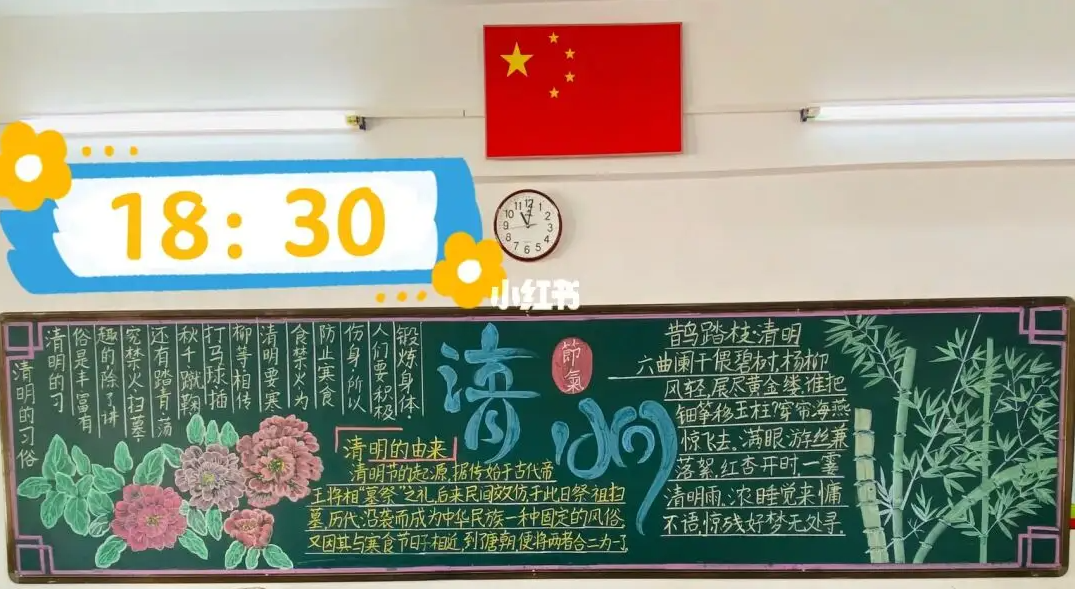 18:30
12
1
2
3
4
5
6
7
8
9
10
11
小红书
清明的习俗
清明的习
俗是丰富有
趣的除了讲
究禁火扫墓
还有踏青、汤
秋千蹴鞠
打马球、插
柳等相传
清明要寒
食禁火为
防止寒食
伤身,所以
人们要积极
锻炼身体。
清明
節氣
清明的由来
清明节的起源,据传始于古代帝
王将相"墓祭"之礼,后来民间效仿于此日祭祖扫
墓,历代沿袭而成为中华民族一种固定的风俗,
又因其与寒食节日子相近,到了唐朝,便将两者合二为一了
鹊踏枝·清明
六曲阑干偎碧树,杨柳
风轻,展尽黄金缕.谁把
钿筝移玉柱,穿帘海燕
惊飞去.满眼游丝兼
落絮,红杏开时,一霎
清明雨.浓睡觉来慵
不语,惊残好梦无处寻.